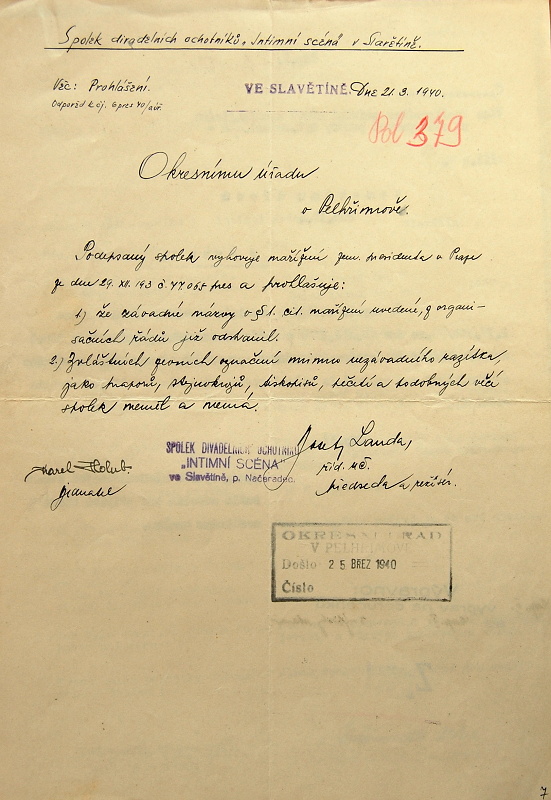 Spolek divadelních ochotníků „Intimní scéna" v Slavětíně.
Věc: Prohlášení.
VE SLAVĚTÍNĚ. Dne 21.3.1940.
Odpověď k čj. 6 pres 40/
379
Okresnímu úřadu
v Pelhřimově.
Podepsaný spolek vyhovuje nařízení zem. presidenta v Praze
ze dne 29.XII.193 č. 77065 pres a prohlašuje:
1) že závadné názvy v § 1. cit. nařízení uvedené, z organi-
sačních řádů již odstranil.
2.) Zvláštních pevních označení mimo nezávadného razítka,
jako praporů, stejnokrojů, tiskopisů, pečetí a podobných věcí
spolek neměl a nemá.
SPOLEK DIVADELNÍCH OCHOTNÍKŮ
„INTIMNÍ SCÉNA"
ve Slavětíně, p. Načeradec.
Josef Landa,
říd. uč.
předseda a režisér.
Karel Holub.
jednatel
OKRESNÍ ÚŘAD
V PELHŘIMOVĚ
Došlo 25 BŘEZ 1940
Číslo
7